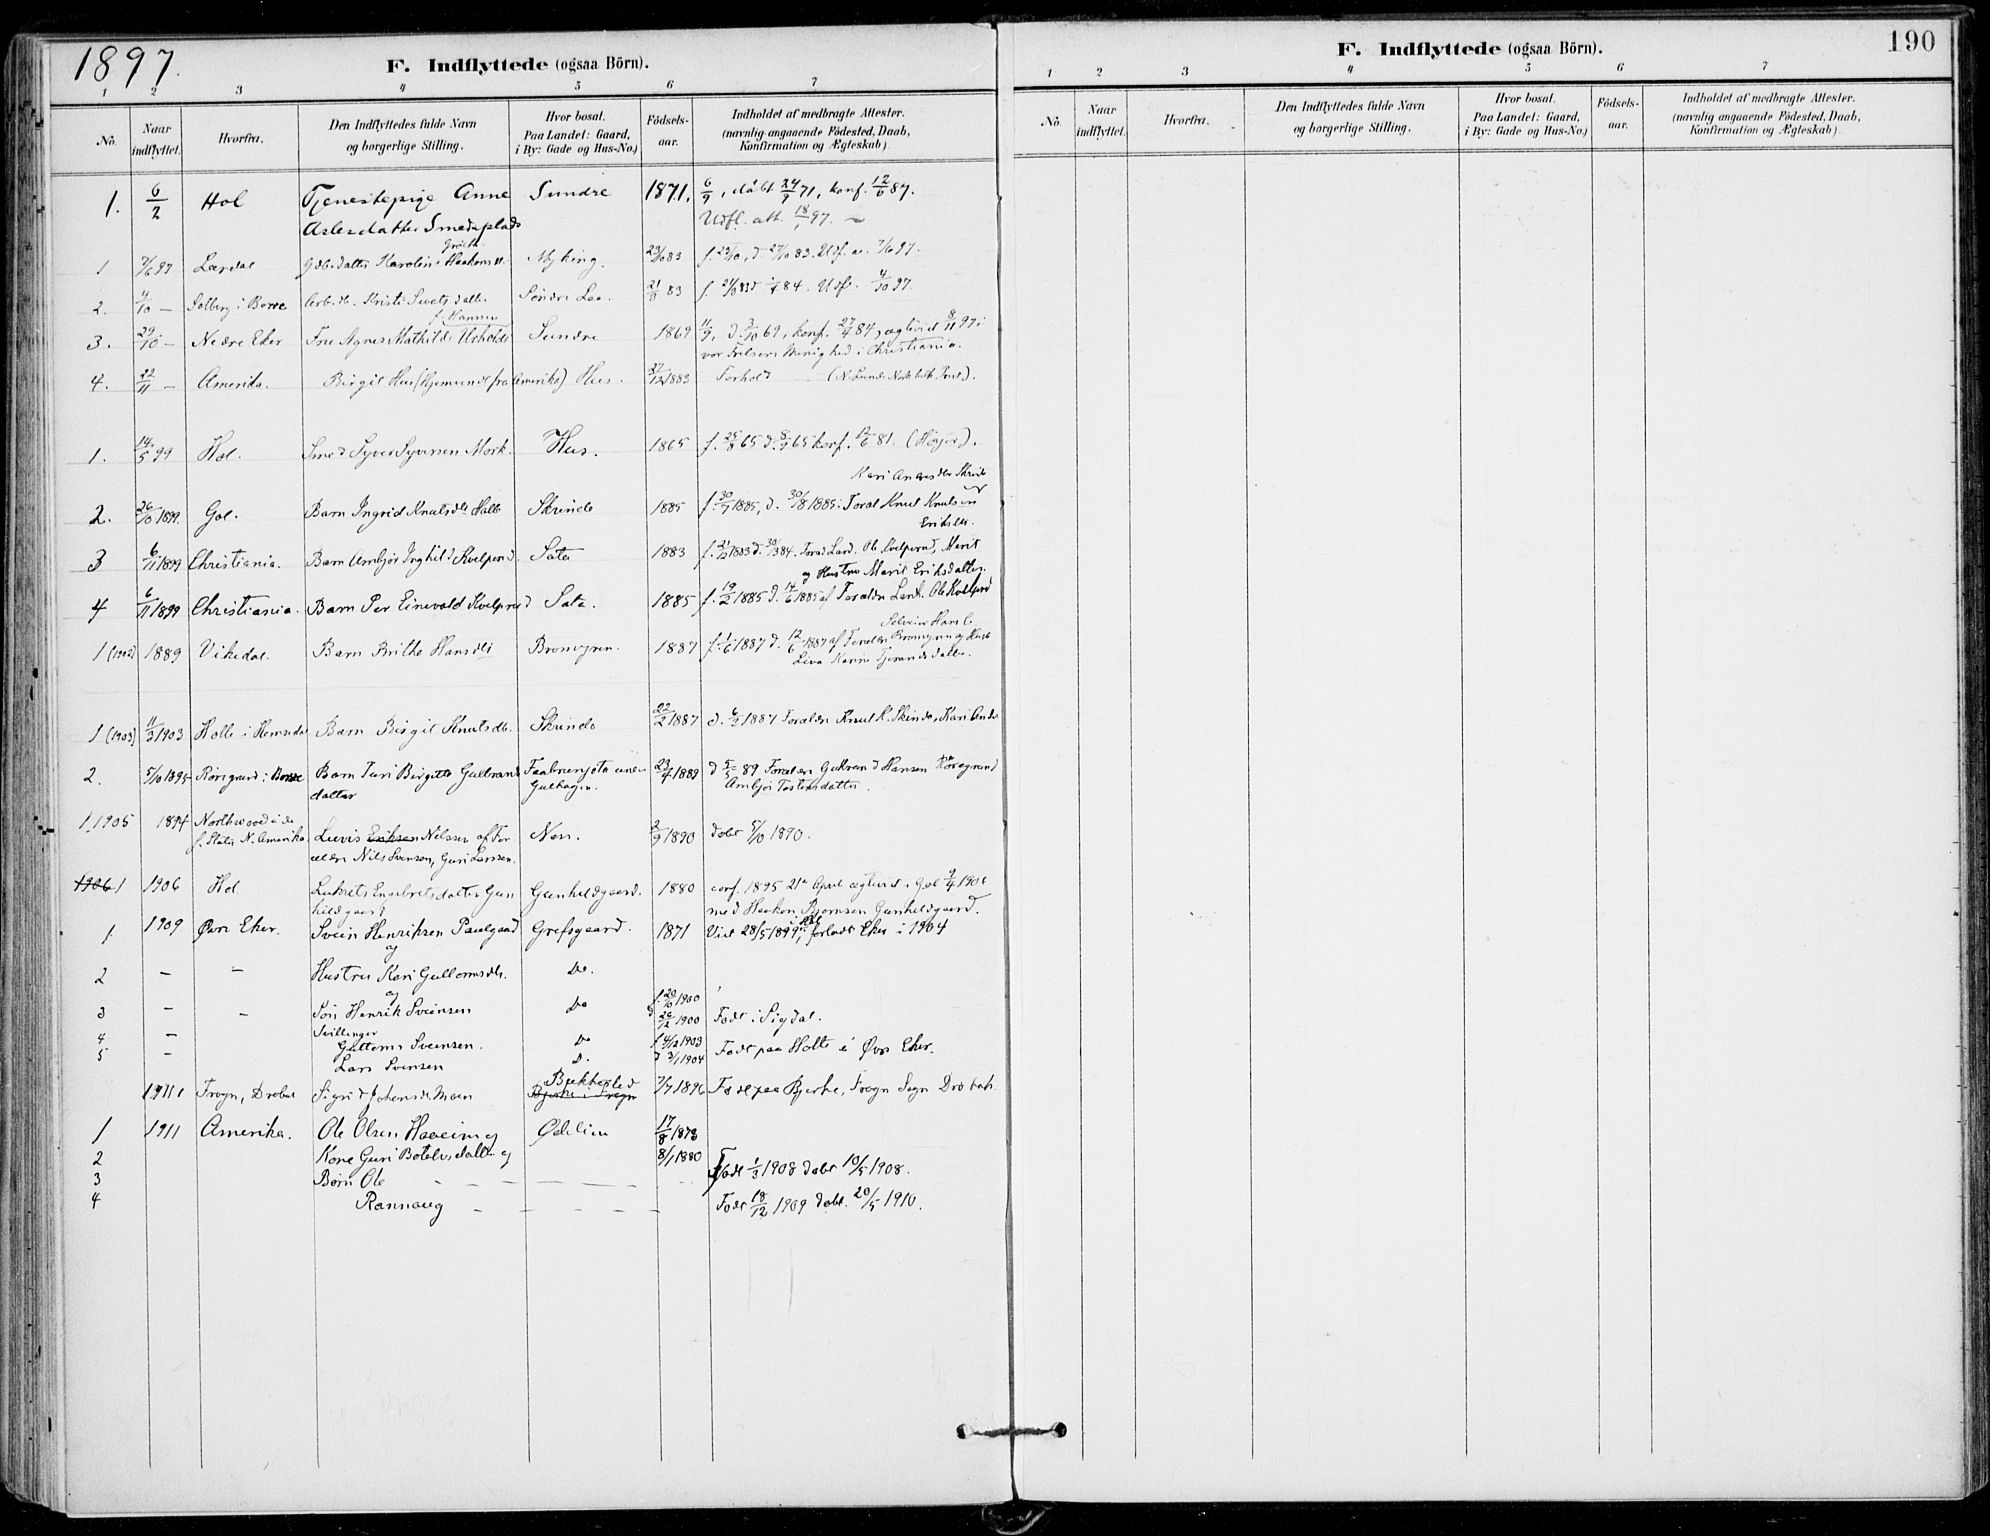 1897.
F. Indflyttede (ogsaa Börn).
1 2 3 4 5 6 7
No. Naar indflyttet. Hvorfra. Den Indflyttedes fulde Navn og borgerlige Stilling. Hvor bosat. Paa Landet: Gaard, i By: Gade og Hus-No.) Födsels-aar. Indholdet af medbragte Attester. (navnlig angaaende Födested, Daab, Konfirmation og Ægteskab)
1. 6/2 Hol Tjenestepige Anne Sundre 1871. 6/9, döbt 24/9 71, konf. 12/6 87.
Aslesdatter Smedsplads Udfl. att. 18/1 97.
1 7/6 97 Lærdal Karoline Haakonsd. Myking. 23/10 83 f. 23/10, d. 27/10 83. Udf. at. 7/6 97.
2. 4/10 — Solberg i Borre Kristi Söndre Lee. 21/3 83 84. Udf. 4/10 97.
f. Hansen
3. 29/10 — Nedre Eker Frue Agnes Mathilde Sundre 1869 11/9, d. 3/10 69, konf. 27/4 84, ægteviet 8/11 97 i
vor Frelsers Menighed i Christiania.
4. 22/11 — Amerika. Birgit Hus (Hjemvendt fra Amerika) Hus. 1883 Forhold
1. 14/5 99 Hol. Smed Syver Syversen Mork. Hus. 1865 f. 25/8 65 d. 65 konf. 12/6 81. (Höjer).
Kari Andersdtr Skrindo
2. 26/10 1899. Gol. Barn Ingrid Knutsdtr Holle Skrindo 1885 f. 30/7 1885, d. 30/8 1885. Foræl Knut Knutsen
3 6/11 1899 Christiania. Barn Ambjör Inghild Kvelprud. Sata 1883 f. 21/12 1883 d. 30/3 84. Foræl Land. Ole Kvelprud, Marit
og Hustru Marit Eriksdatter.
4 6/11 1899 Christiania. Barn Per Einevald Kvelprud Sata. 1885 f. 19/2 1885 d. 14/6 1885 af Forældr Land. Ole Kvelprud
1 (1902) 1889 Vikedal. Barn Brithe Hansdtr Bromgren. 1887 f. 1/6 1887 d. 12/6 1887 af Forældre Bromgren og Hustr
Liva Karine Tjerandsdatter.
1 (1903) 11/3 1903 Holle i Hemsedal Barn Birgit Knutsdtr. Skrindo 22/2 1887 d. 6/3 1887 Forældre Knut K. Skrindo, Kari Anders
2. 5/10 1895 Röregrund i Borre Barn Turi Birgitte Gulbrands 23/4 1889 d 5/5 89 Forældre Gulbrand Hansen Röregrund
datter Gulhagen. Ambjör Tostensdatter.
1.1905 1894 Northwood i de
f. Stater N. Amerika. Luvis Eriksen Nilssen af For Nes. 2/9 1890 döbt 5/10 1890.
ældre Nils Svensen, Guri Larssen.
1906 1 1906 Hol Lukrets Engebretsdatter Gun Gunhildgaard. 1880 conf. 1895 21de April ægteviet i Gol 1906
hildgaard med Haakon Bjørnsen Gunhildgaard.
1 1909 Øvre Eker. Svein Henriksen Paulgaard Grefsgaard. 1871 Viet 28/5 1899 i Aal, forladt Eker i 1904
og
2 — — Hustru Kari Guttormsdtr. Do.
og
3 — — Sön Henrik Sveinsen Do f. 20/10 1900
d 26/12 1900 Født i Sigdal.
Tvillinger
4 — Guttorm Sveinsen. Do f 4/12 1903
5 — Lars Svensen D. d 3/1 1904 Født paa Holte i Øvre Eker.
1911 1 Frogn, Drøbak Sigrid Johansdr Moen Bjerke i Frogn 7/7 1896 Født paa Bjerke, Frogn Sogn Drøbak.
1 1911 Amerika. Ole Olsen Haaeim og Ødelien 17/8 1878
2 Kone Guri Botolvsdatter og 8/1 1880
3 Børn Ole Født 1/3 1908 døbt 10/5 1908.
4 Rannaug Født 18/12 1909 døbt. 20/5 1910.
190
F. Indflyttede (ogsaa Börn).
1 2 3 4 5 6 7
No. Naar indflyttet. Hvorfra. Den Indflyttedes fulde Navn og borgerlige Stilling. Hvor bosat. Paa Landet: Gaard, i By: Gade og Hus-No.) Födsels-aar. Indholdet af medbragte Attester. (navnlig angaaende Födested, Daab, Konfirmation og Ægteskab)